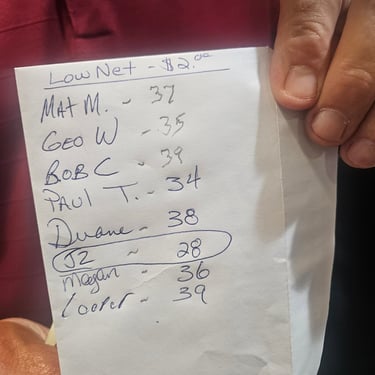 Low Net - $2.00
MAt M. - 37
GEO W - 35
BOB C - 39
PAUL T. - 34
Duane - 38
JZ ~ 28
Megan - 36
Cooper - 39